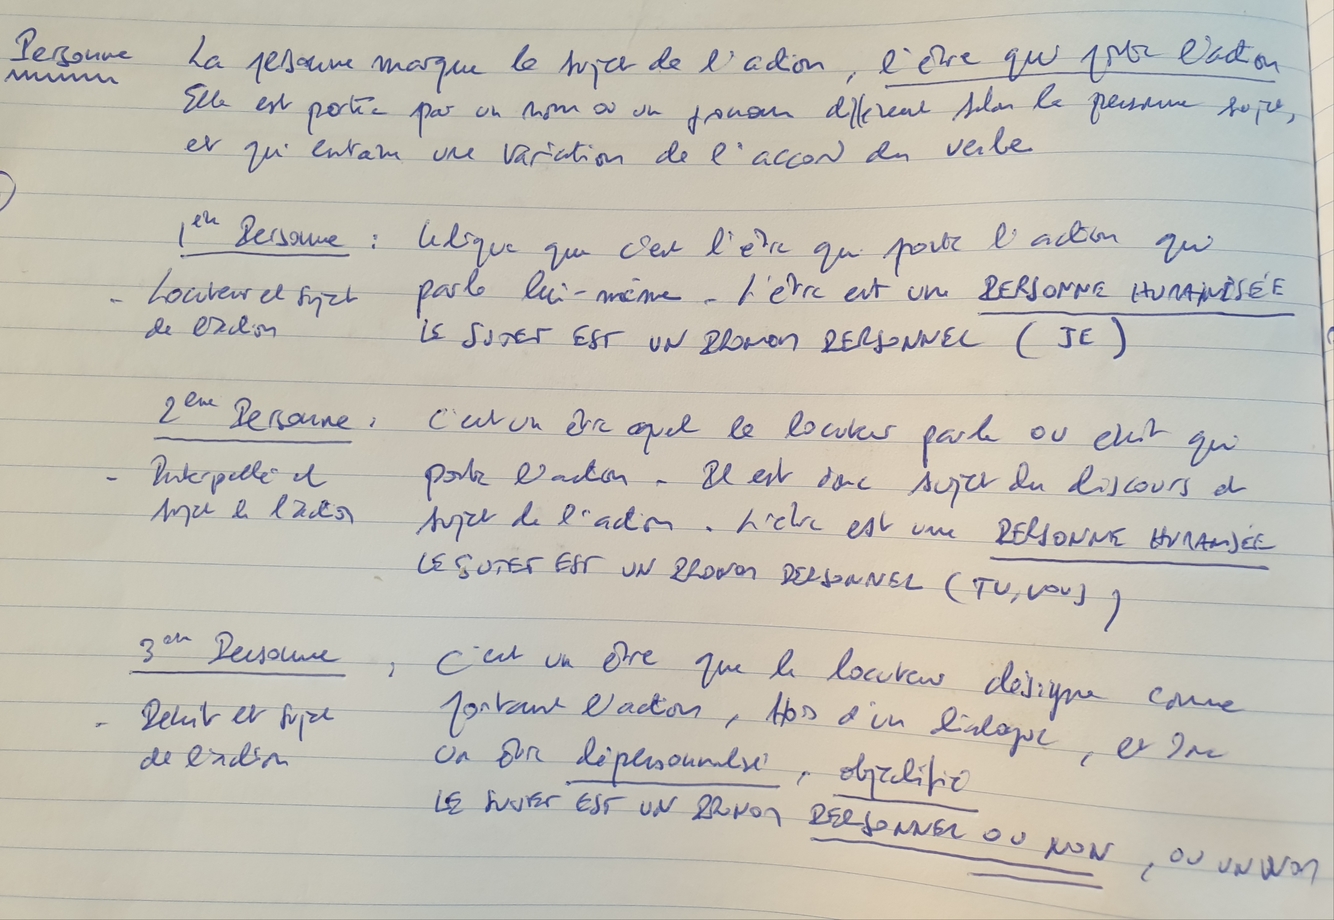 Personne La personne marque le sujet de l'action, l'être qui porte l'action
Elle est portée par un nom ou un pronom différent selon la personne sujet,
et qui entraîne une variation de l'accord du verbe
1ère Personne : Indique que c'est l'être qui porte l'action qui
- Locuteur et sujet parle lui-même. L'être est une PERSONNE HUMANISÉE
de l'action LE SUJET EST UN PRONOM PERSONNEL (JE)
2ème Personne : C'est un être auquel le locuteur parle ou écrit qui
- Interpellé et porte l'action. Il est donc sujet du discours et
sujet de l'action sujet de l'action. L'être est une PERSONNE HUMANISÉE
LE SUJET EST UN PRONOM PERSONNEL (TU, VOUS)
3ème Personne , C'est un être que le locuteur désigne comme
- Décrit et sujet portant l'action, hors d'un dialogue, et donc
de l'action un être dépersonnalisé, objectifié
LE SUJET EST UN PRONOM PERSONNEL OU NON, OU UN NOM